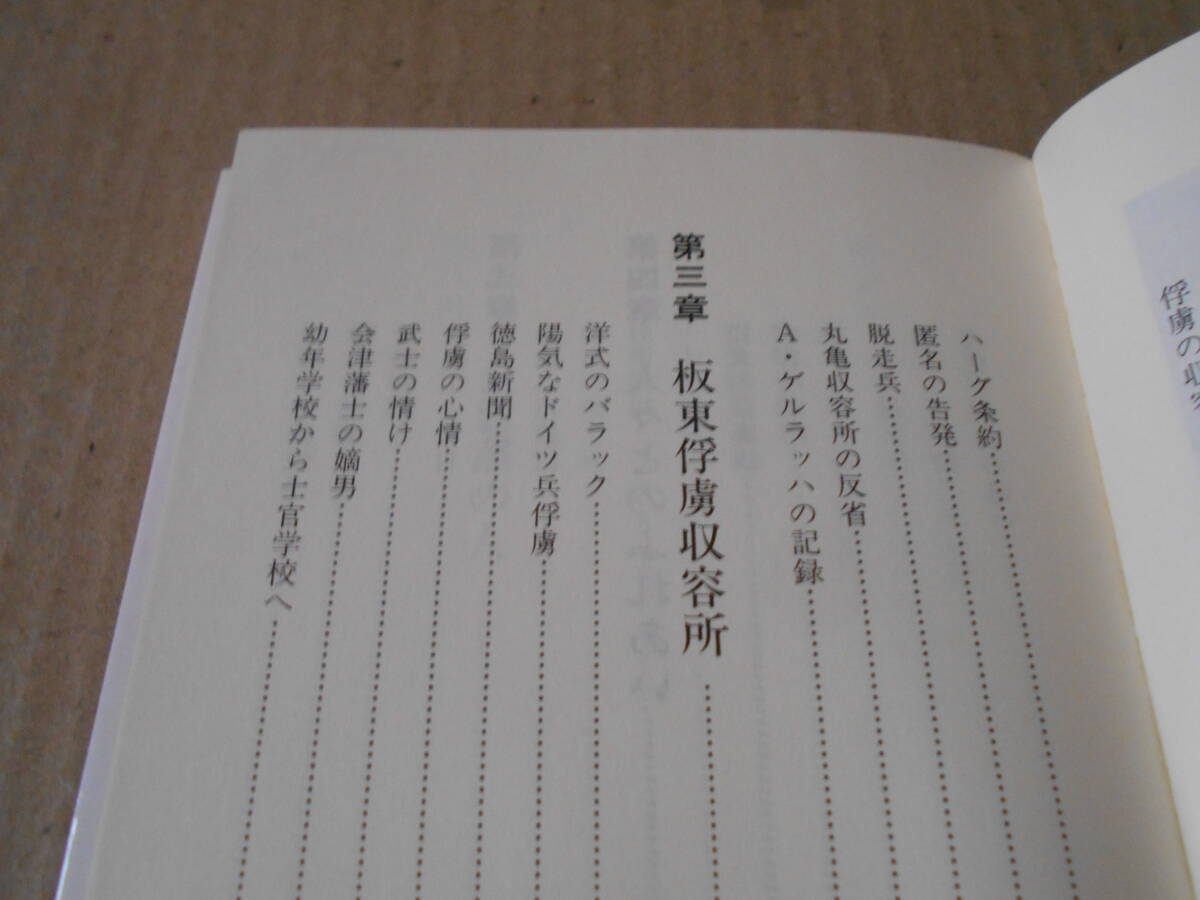 俘虜の収
ハーグ条約
匿名の告発
脱走兵
丸亀収容所の反省
A・ゲルラッハの記録
第三章 板東俘虜収容所
洋式のバラック
陽気なドイツ兵俘虜
徳島新聞
俘虜の心情
武士の情け
会津藩士の嫡男
幼年学校から士官学校へ